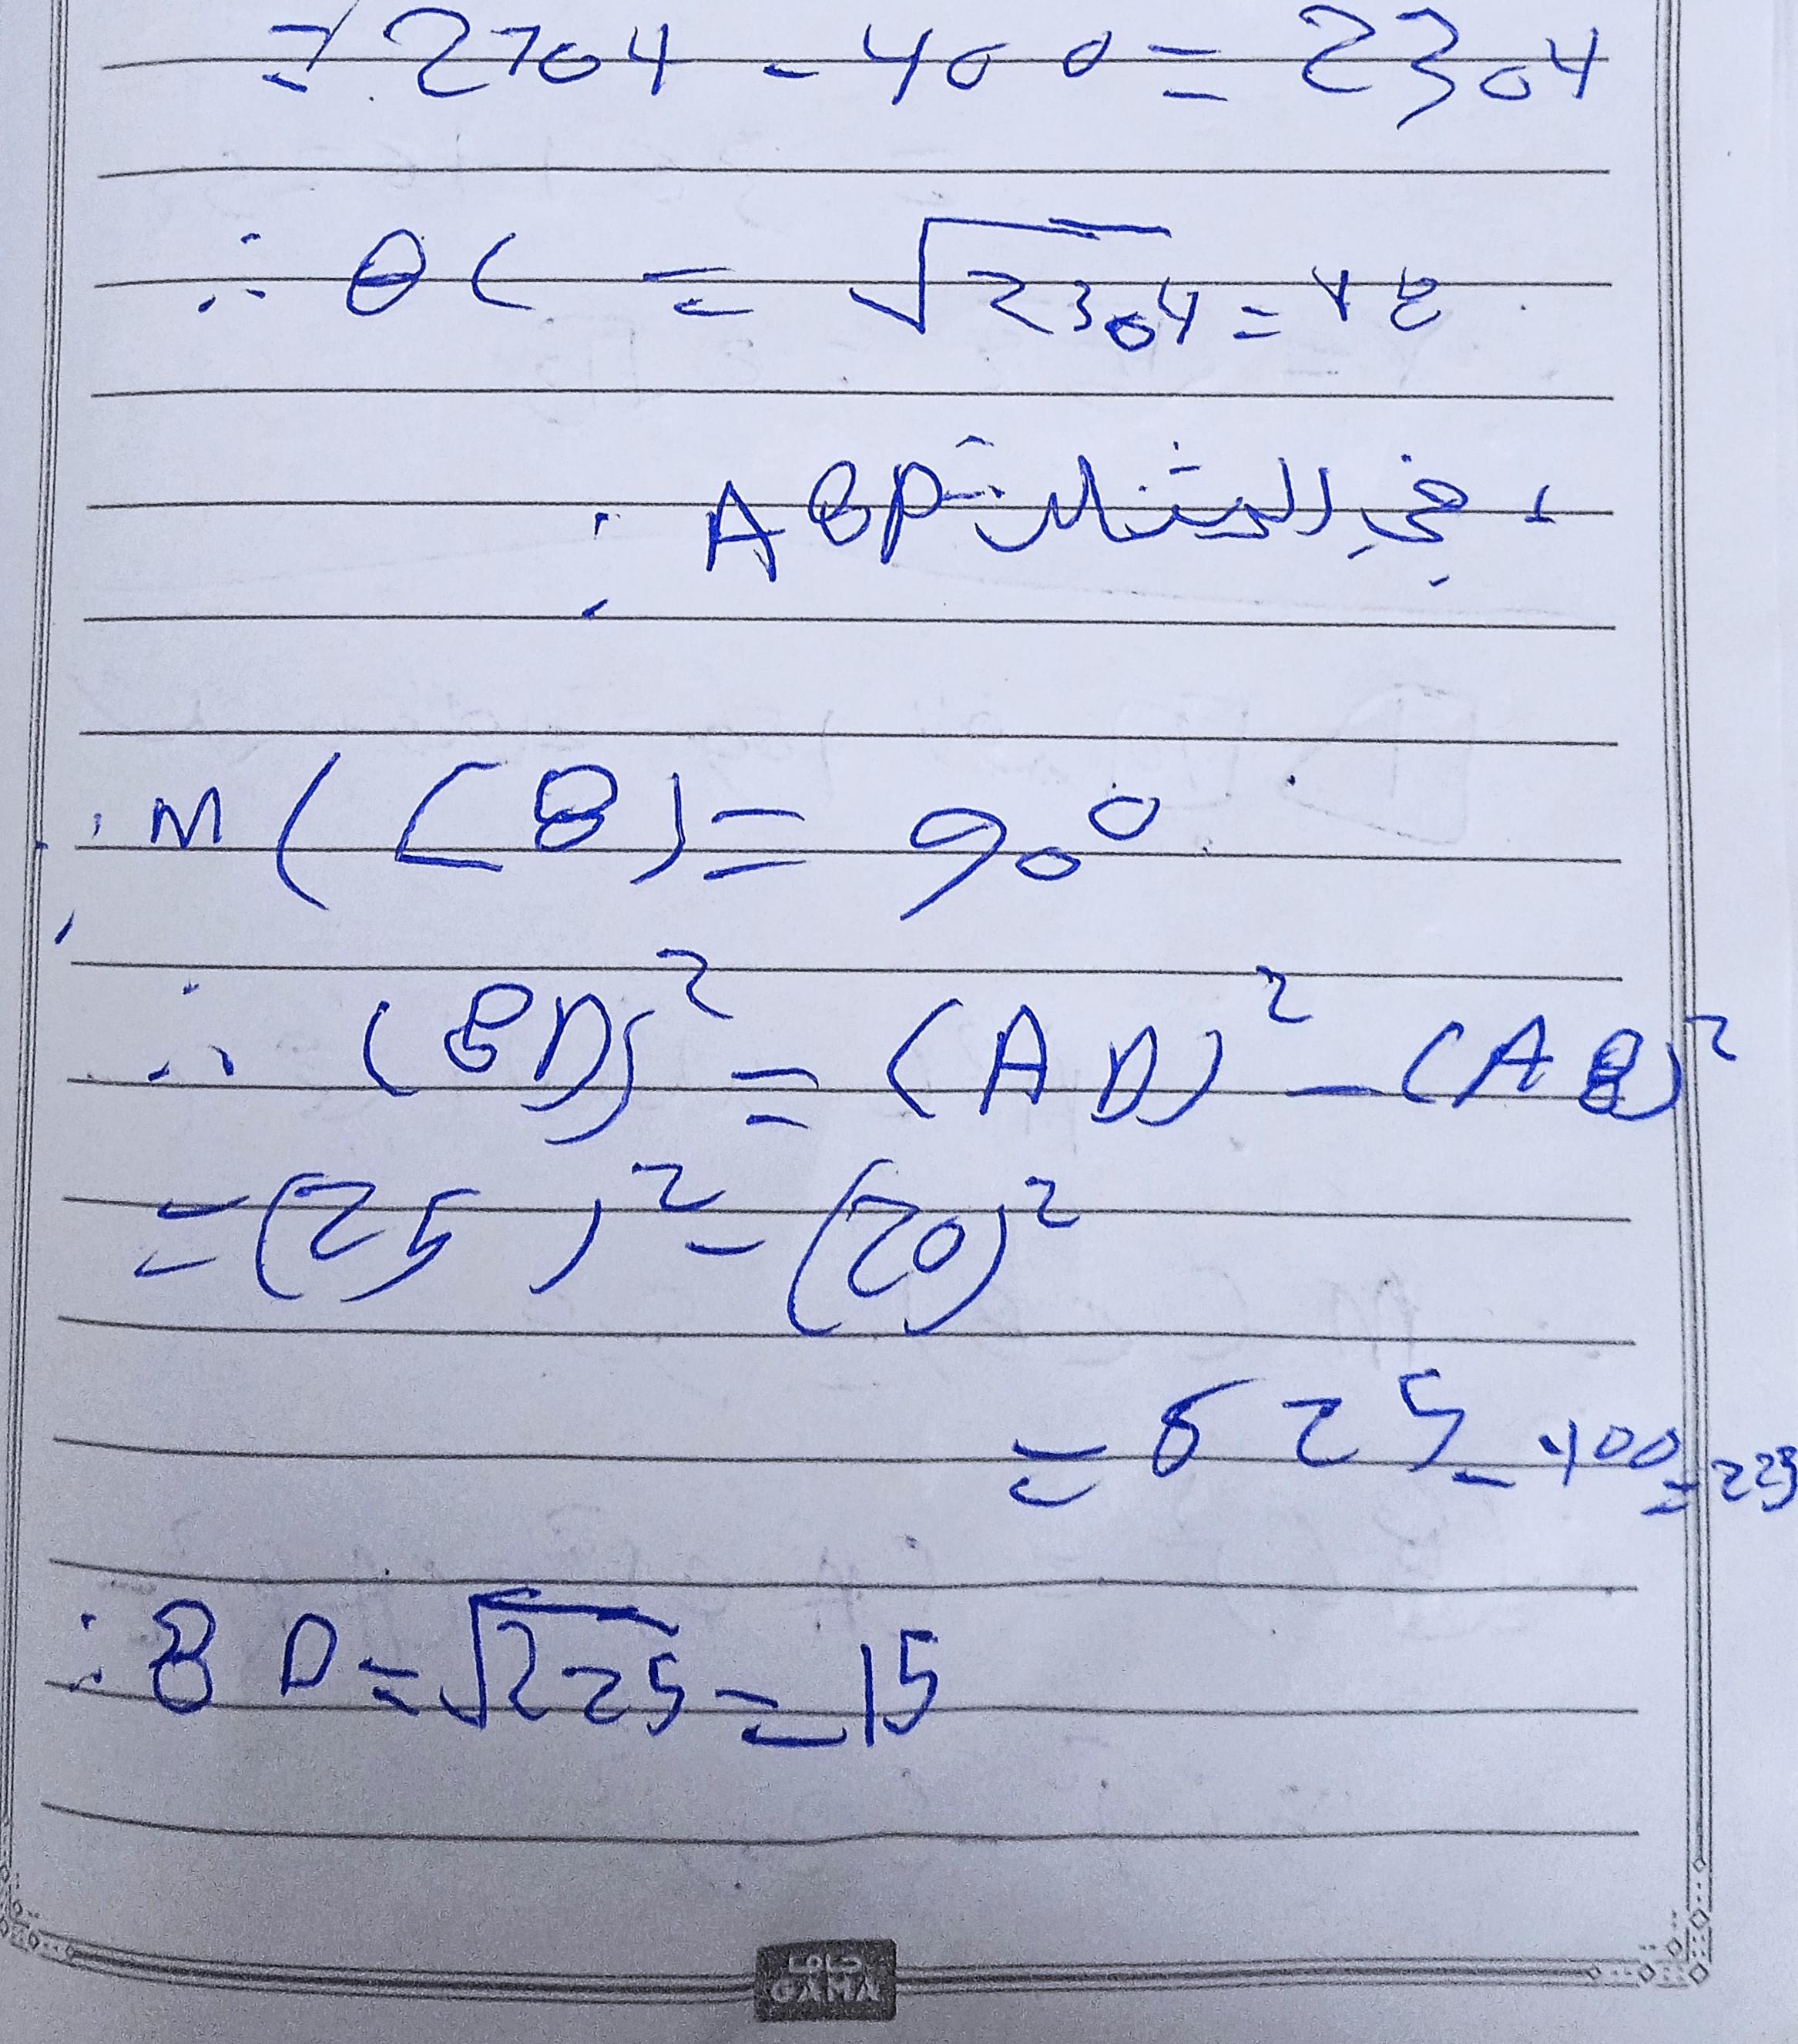 = 2704 - 400 = 2304
∴ BC = √2304 = 48
، في المثلث ABD :
∵ m (∠B) = 90°
∴ (BD)² = (AD)² - (AB)²
= (25)² - (20)²
= 625 - 400 = 225
∴ BD = √225 = 15